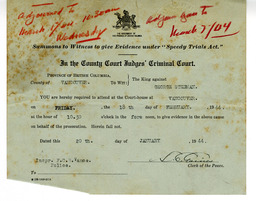 Adjourned to
March 1/44 10:30am
Wednesday
Adjourned to
March 7/44
Summons to Witness to give Evidence under "Speedy Trials Act."
In the County Court Judges' Criminal Court.
PROVINCE OF BRITISH COLUMBIA,
County of VANCOUVER. To Wit:
The King against
GEORGE
You are hereby required to attend at the Court-house at VANCOUVER.
on FRIDAY. the 18th day of FEBRUARY. 1944.
at the hour of 10.30 o'clock in the fore noon, to give evidence in the above case
on behalf of the prosecution. Herein fail not.
Dated this 20 th. day of JANUARY. 1944
Clerk of the Peace.
To
Police.